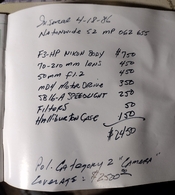 Insured 4-18-86
Nationwide 52 MP 062 655
F3-HP Nikon Body $750
70-210mm Lens 450
50mm f1.2 450
MD4 Motor Drive 350
SB16-A Speedlight 250
Filters 50
Halliburton Case 150
$2450
Pol. Category 2 "Camera"
Coverage: $2500